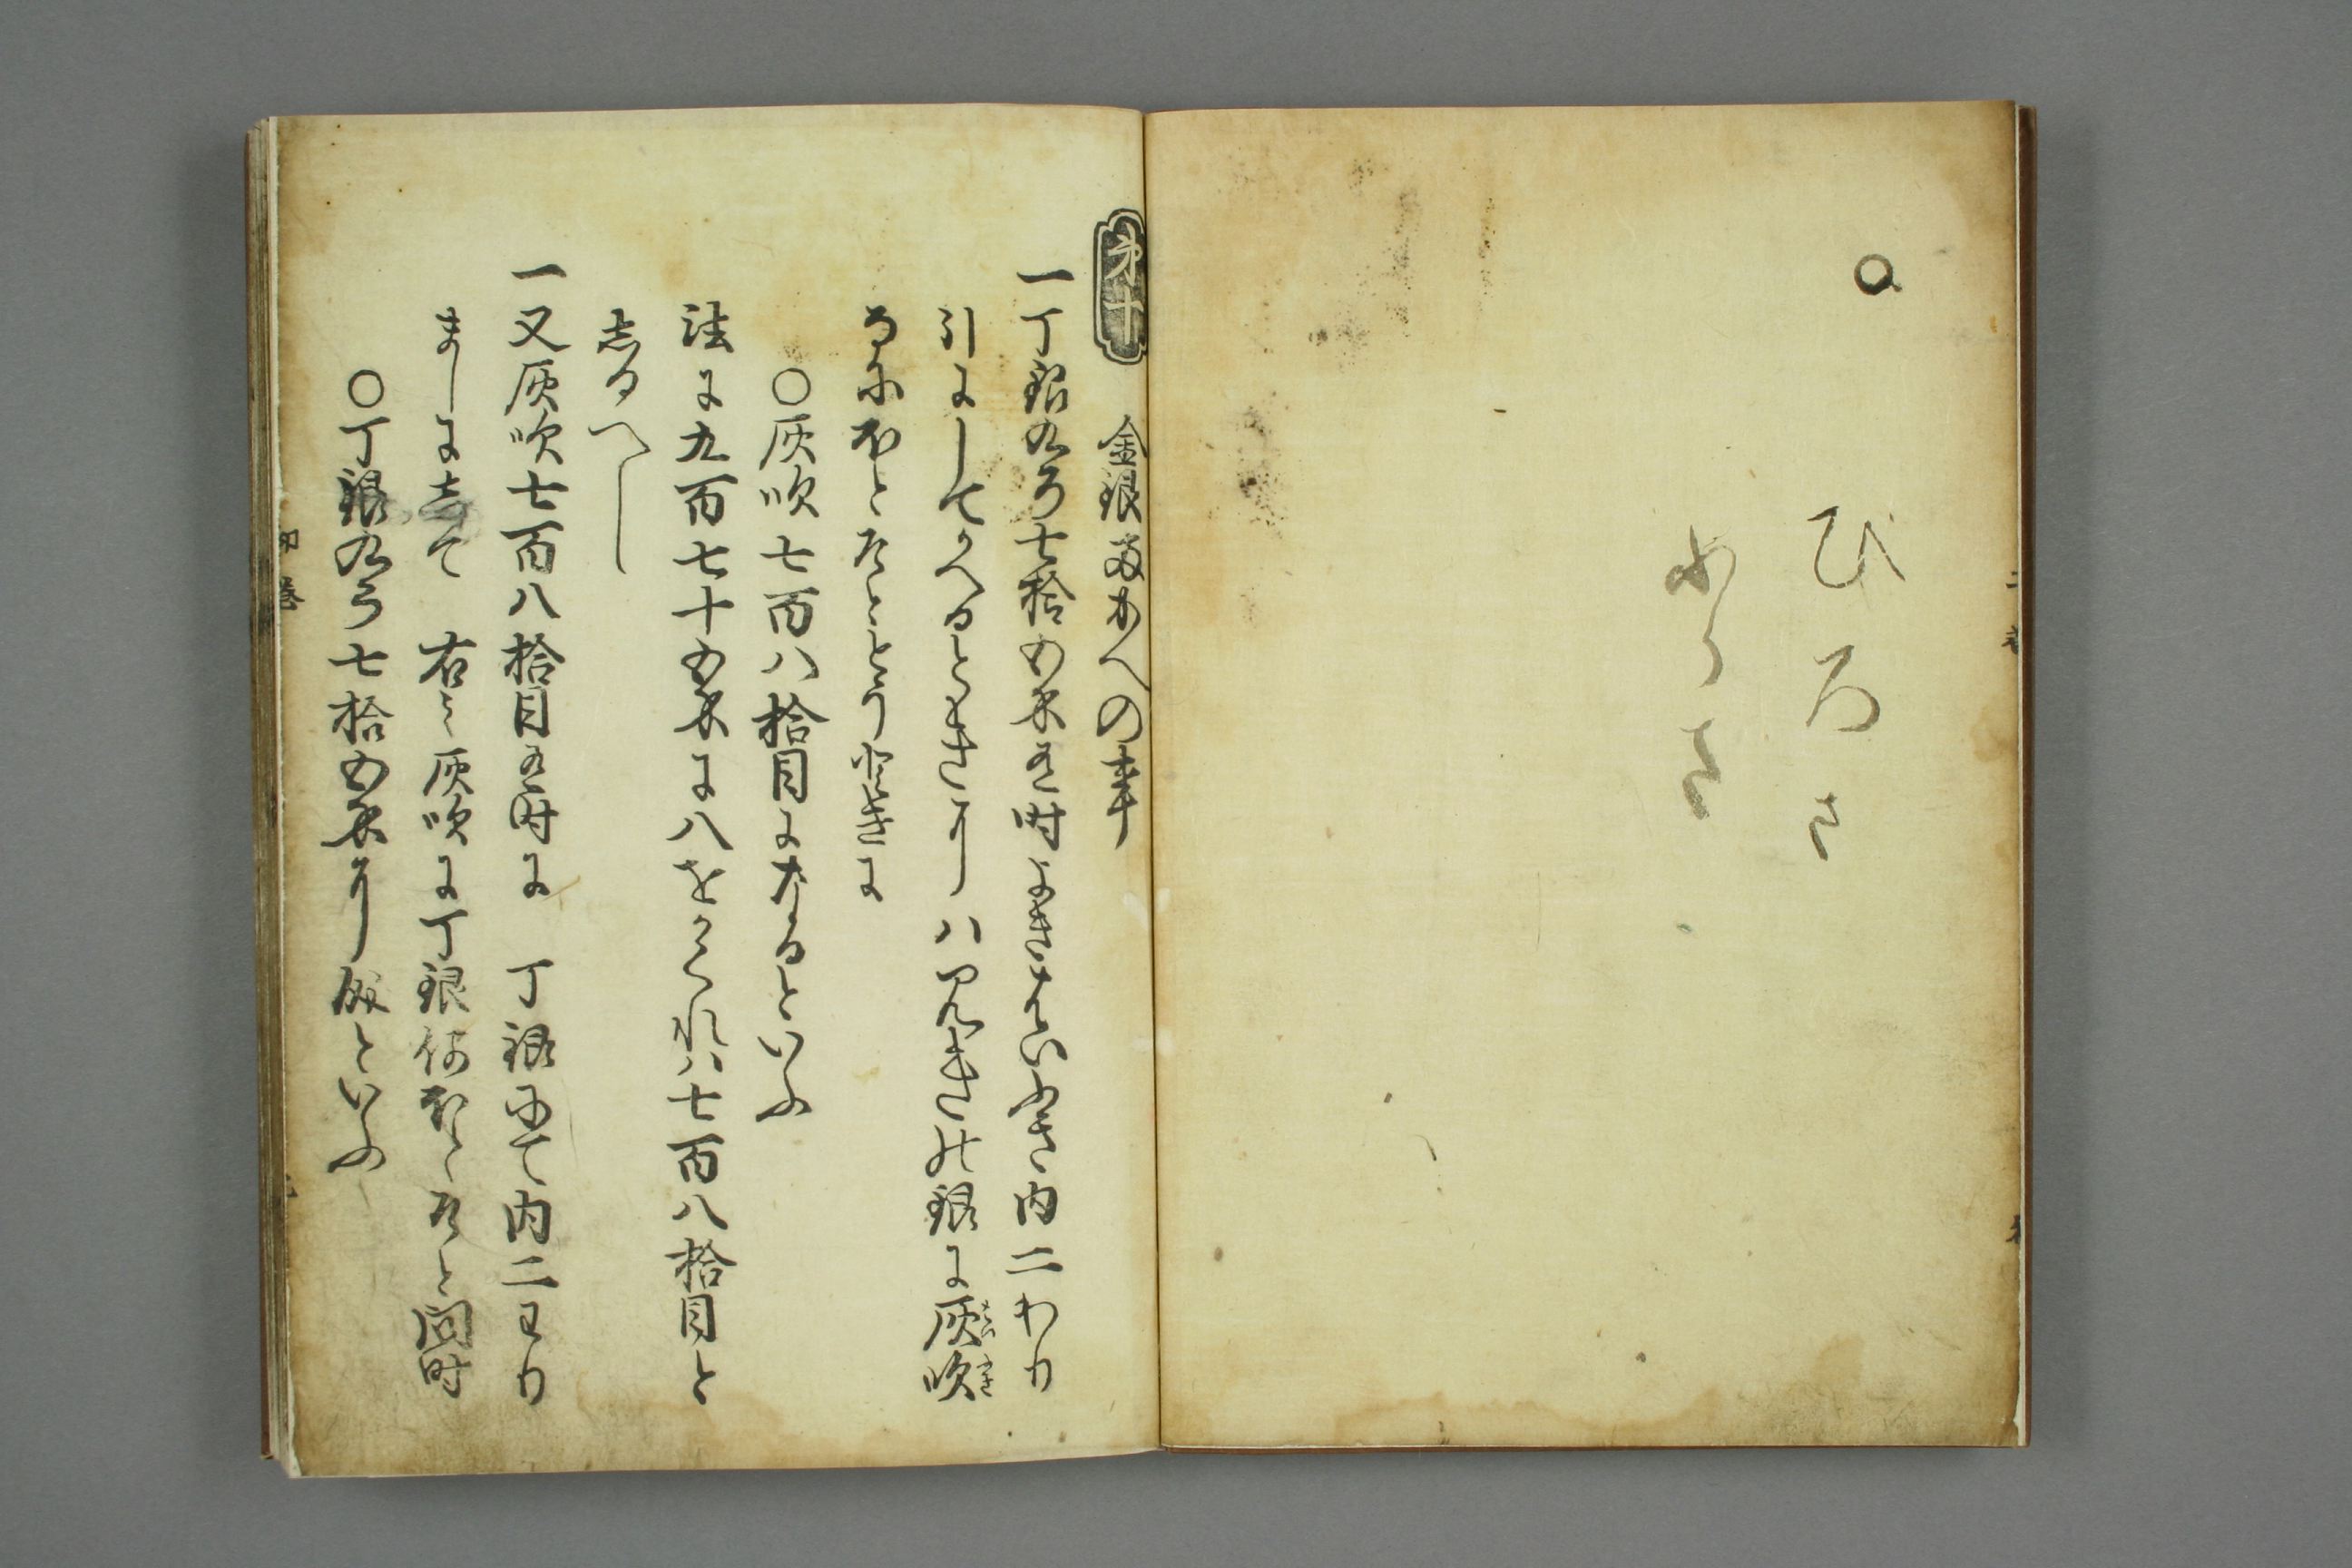 ○ ひろさ
第十 金銀両かへの事
一丁銀九百七拾五匁有時 はいふき内二わり
引にしてかへるとき 銀に灰吹
なにほとそととう時に
○灰吹七百八拾目になるといふ
法に九百七十五匁に八をかくれハ七百八拾目と
志るへし
一又灰吹七百八拾目有時に 丁銀にて内二わり
ましにして 右之灰吹に丁銀何ほとそと問時
○丁銀九百七拾五匁に成といふ
初巻